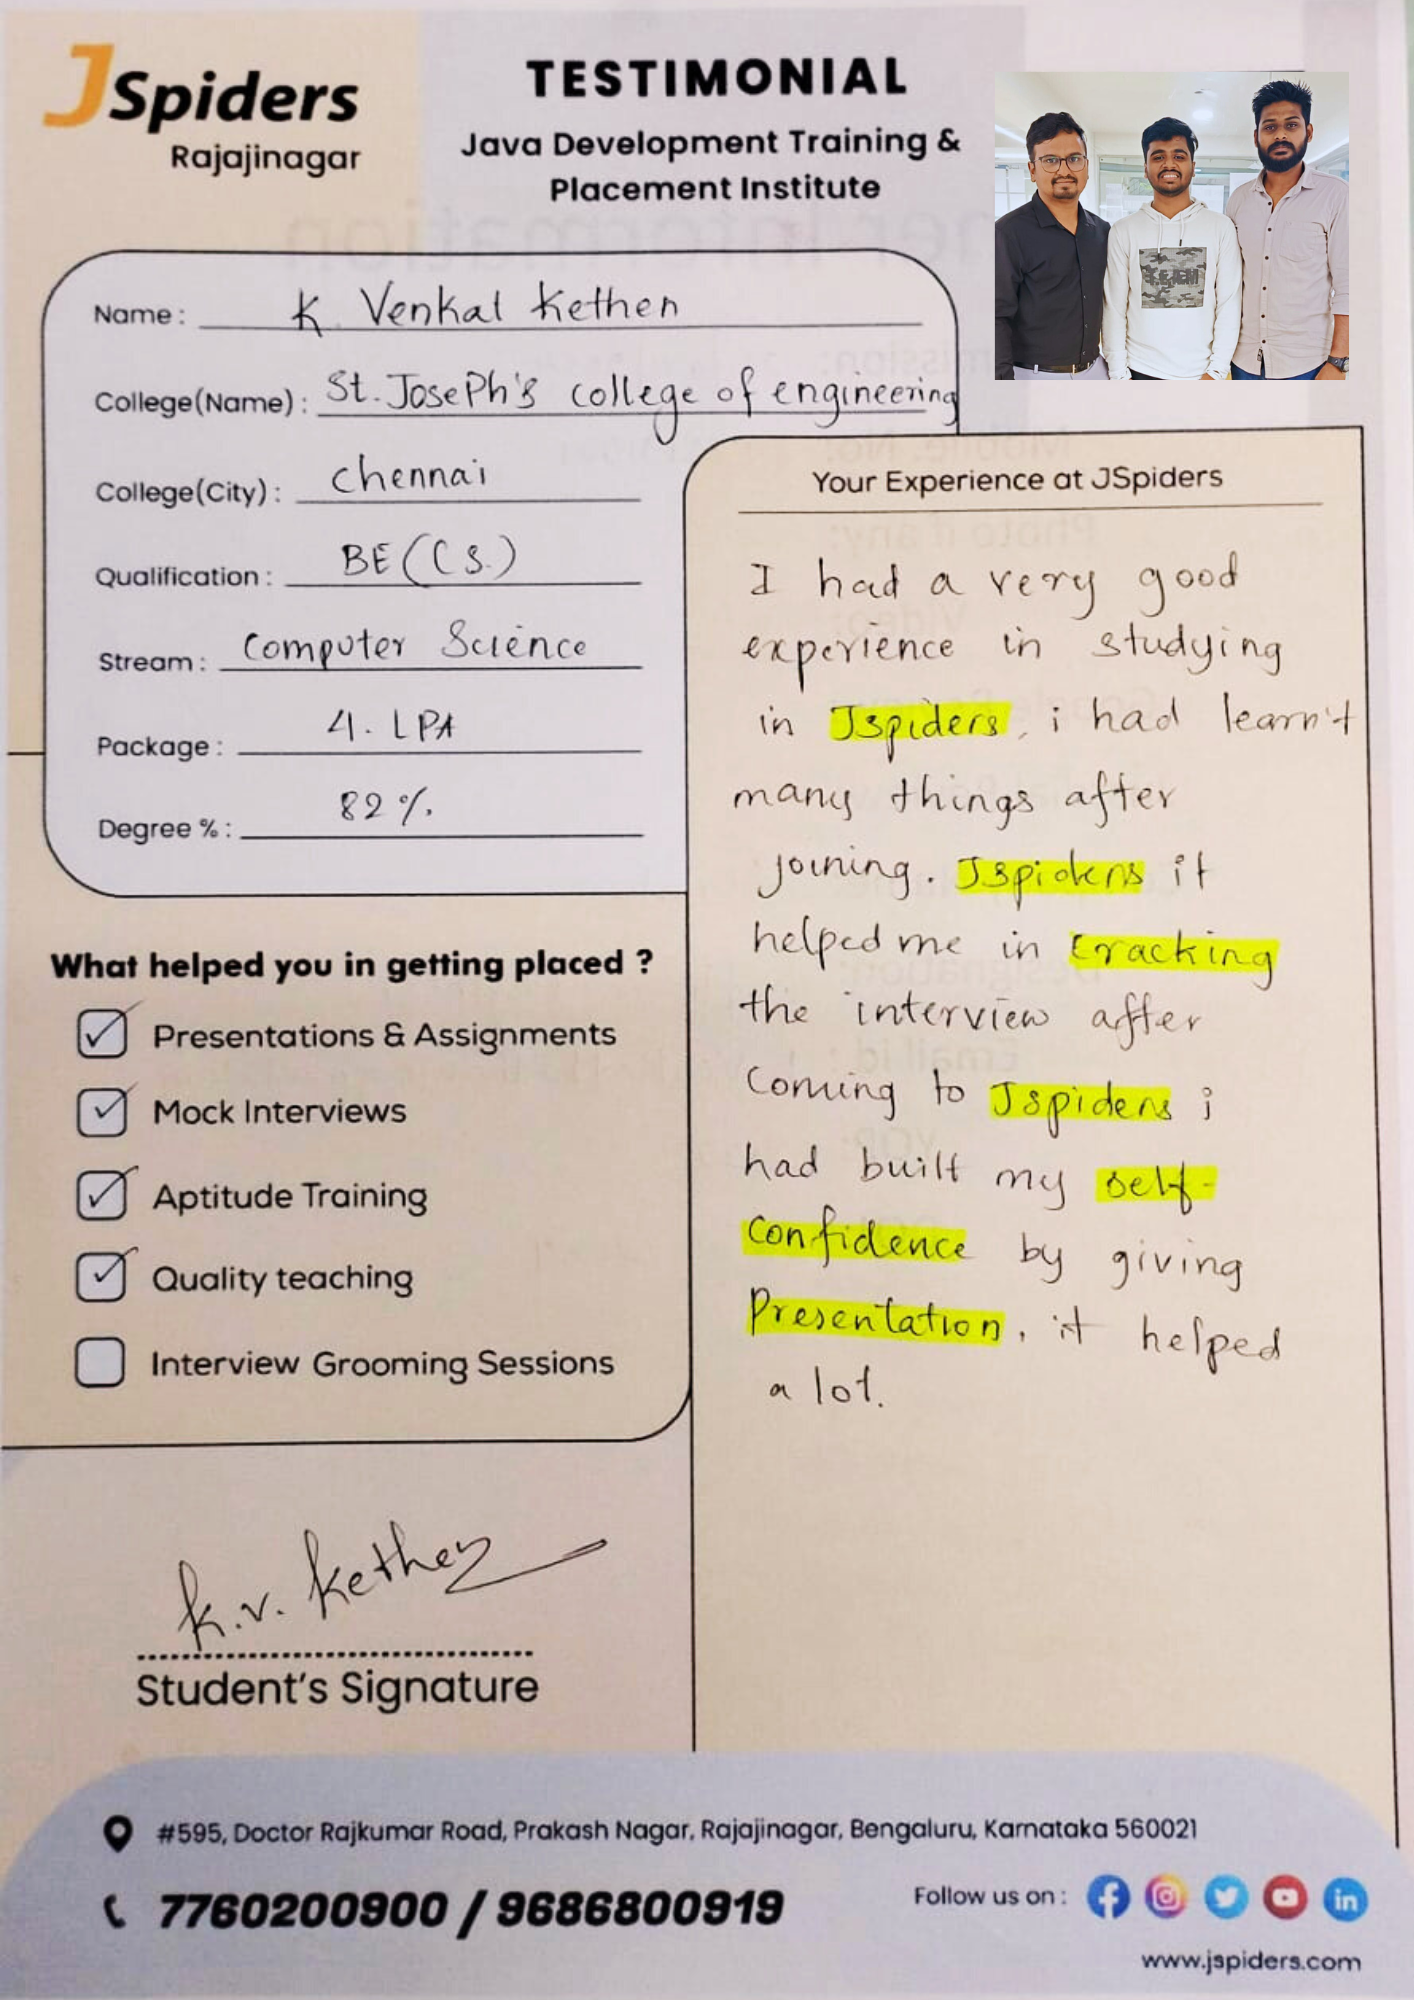 JSpiders
Rajajinagar
TESTIMONIAL
Java Development Training &
Placement Institute
Name : K. Venkal Kethen
College(Name) : St. JosePh's college of engineering
College(City) : Chennai
Qualification : BE (CS.)
Stream : Computer Science
Package : 4. LPA
Degree % : 82 %.
What helped you in getting placed ?
Presentations & Assignments
Mock Interviews
Aptitude Training
Quality teaching
Interview Grooming Sessions
K.V. Kethen
Student's Signature
Your Experience at JSpiders
I had a very good
experience in studying
in Jspiders, i had learn't
many things after
joining. Jspiders it
helped me in Cracking
the interview after
Coming to Jspiders i
had built my self-
Confidence by giving
Presentation, it helped
a lot.
TEAM
#595, Doctor Rajkumar Road, Prakash Nagar, Rajajinagar, Bengaluru, Karnataka 560021
7760200900 / 9686800919
Follow us on :
www.jspiders.com